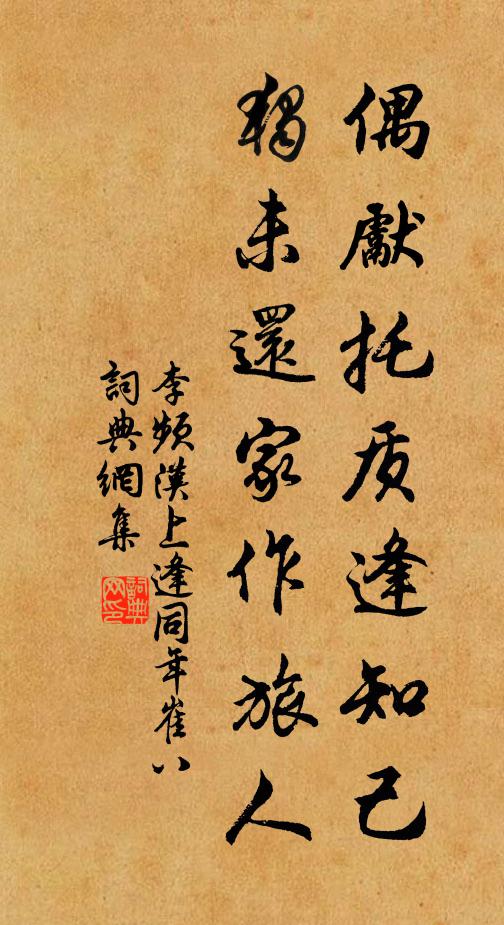 偶獻托质逢知己
獨未還家作旅人
李頻漢上逢同年崔八
詞典網集
詞典网印